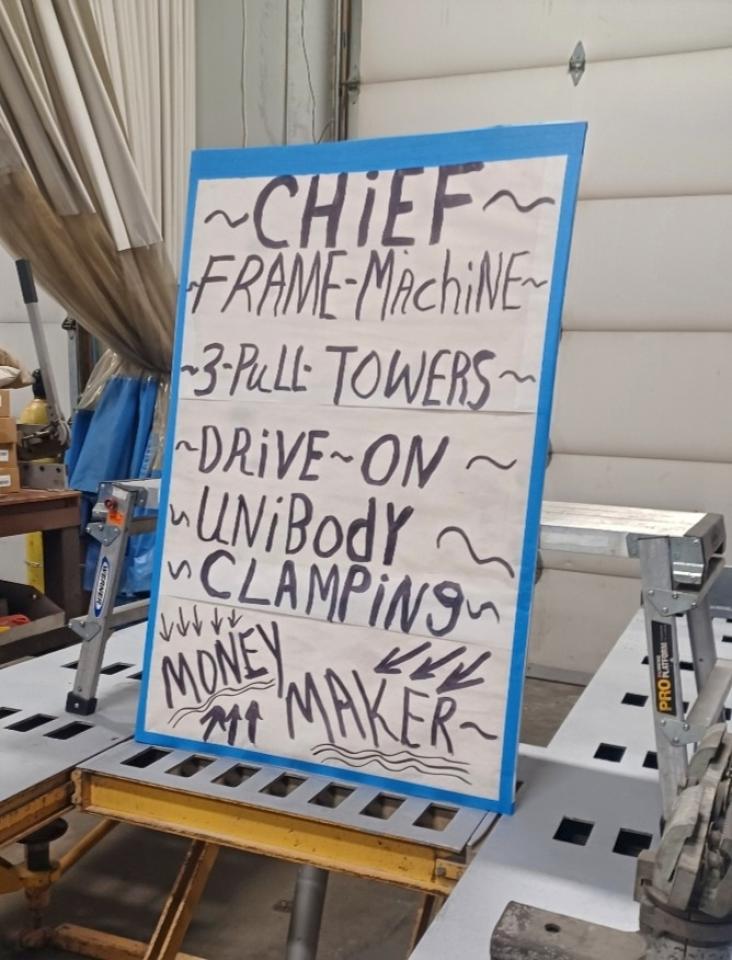 ~CHiEF~
~FRAME-MAchiNE~
~3-PuLL- TOWERS~
~DRiVE~ON~
~UNiBodY~
~CLAMPiNg~
MONEY
MAKER~
WERNER
PRO PLATFORM